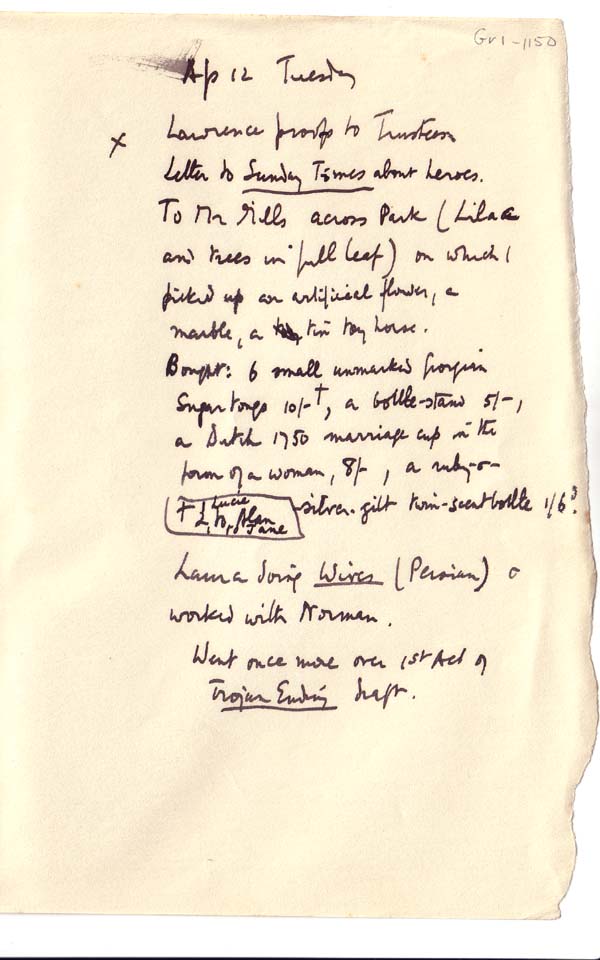 Gv1-1150
Ap 12 Tuesday
x Lawrence proofs to Trustees
Letter to Sunday Times about heroes.
To Mr Mells across Park (Lilac
and trees in full leaf) on which I
picked up an artificial flower, a
marble, a tin toy horse.
Bought: 6 small unmarked Georgian
Sugar tongs 10/-†, a bottle-stand 5/-,
a Dutch 1750 marriage cup in the
form of a woman, 8/-, a ruby-&-
silver-gilt twin-scent bottle 1/6?
† Lucie
to, Alan
Jane
Laura doing Wives (Persian) &
worked with Norman.
Went once more over 1st Act of
Trojan Ending draft.